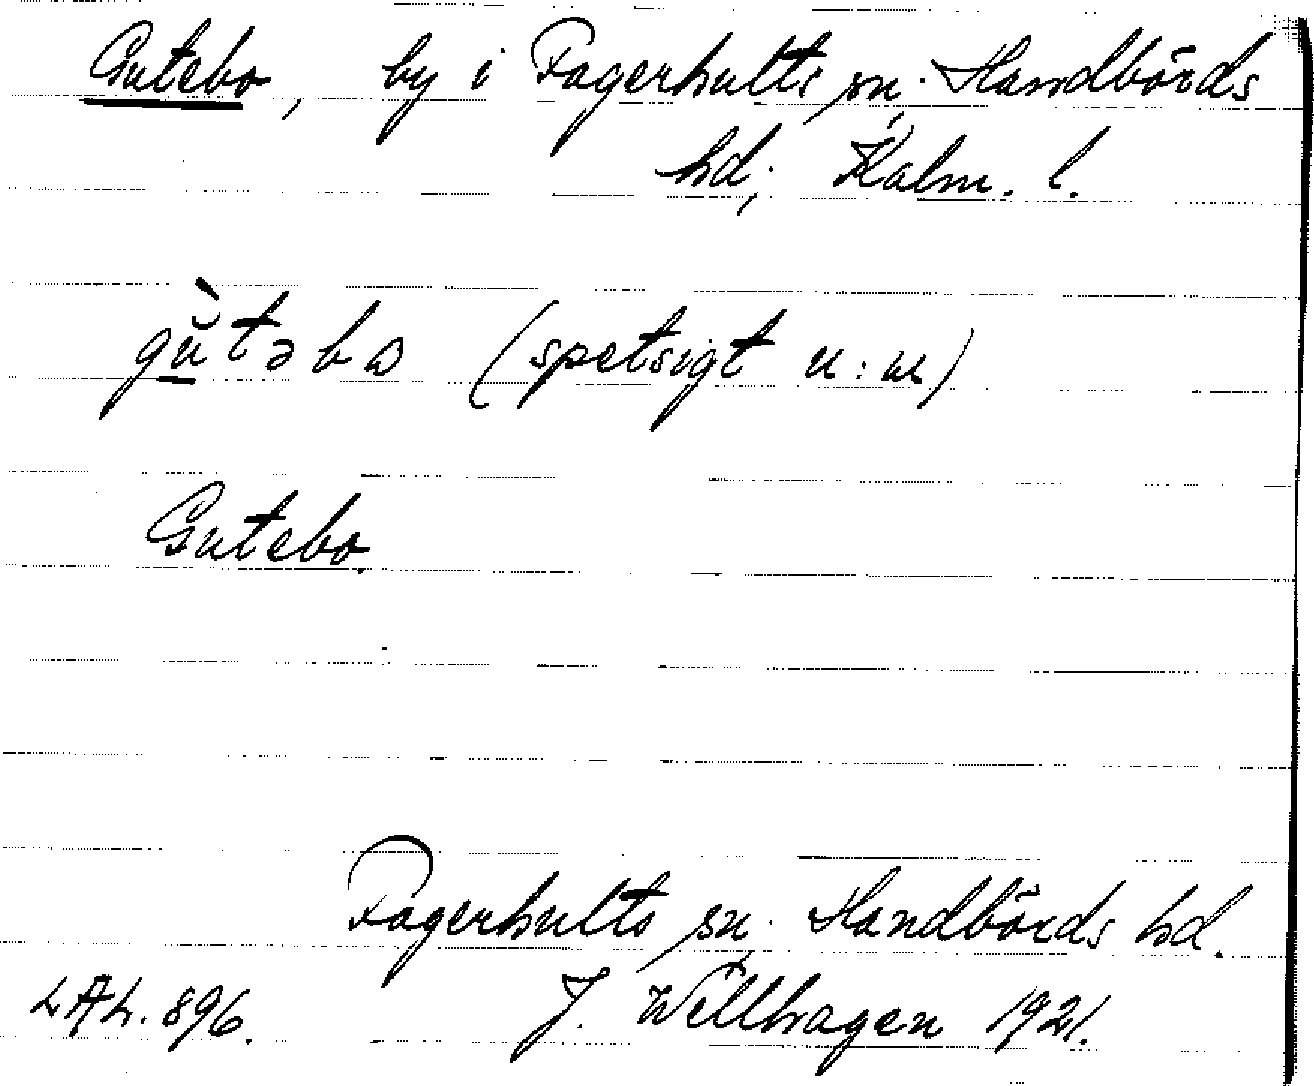 Gutebo, by i Fagerhults sn. Handbörds
hd; Kalm. l.
gùtəbo (spetsigt u:u)
Gutebo.
Fagerhults sn. Handbörds hd.
LAL. 896. J. Wellhagen 1921.